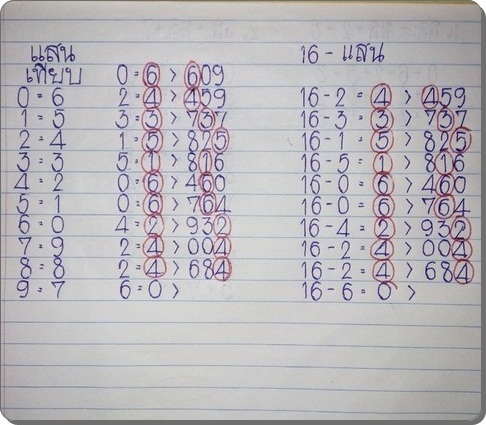 แสน 16 - แสน
เทียบ 0 = 6 > 609
0 = 6 2 = 4 > 459 16 - 2 = 4 > 459
1 = 5 3 = 3 > 737 16 - 3 = 3 > 737
2 = 4 1 = 5 > 825 16 - 1 = 5 > 825
3 = 3 5 = 1 > 816 16 - 5 = 1 > 816
4 = 2 0 = 6 > 460 16 - 0 = 6 > 460
5 = 1 0 = 6 > 764 16 - 0 = 6 > 764
6 = 0 4 = 2 > 932 16 - 4 = 2 > 932
7 = 9 2 = 4 > 004 16 - 2 = 4 > 004
8 = 8 2 = 4 > 684 16 - 2 = 4 > 684
9 = 7 6 = 0 > 16 - 6 = 0 >